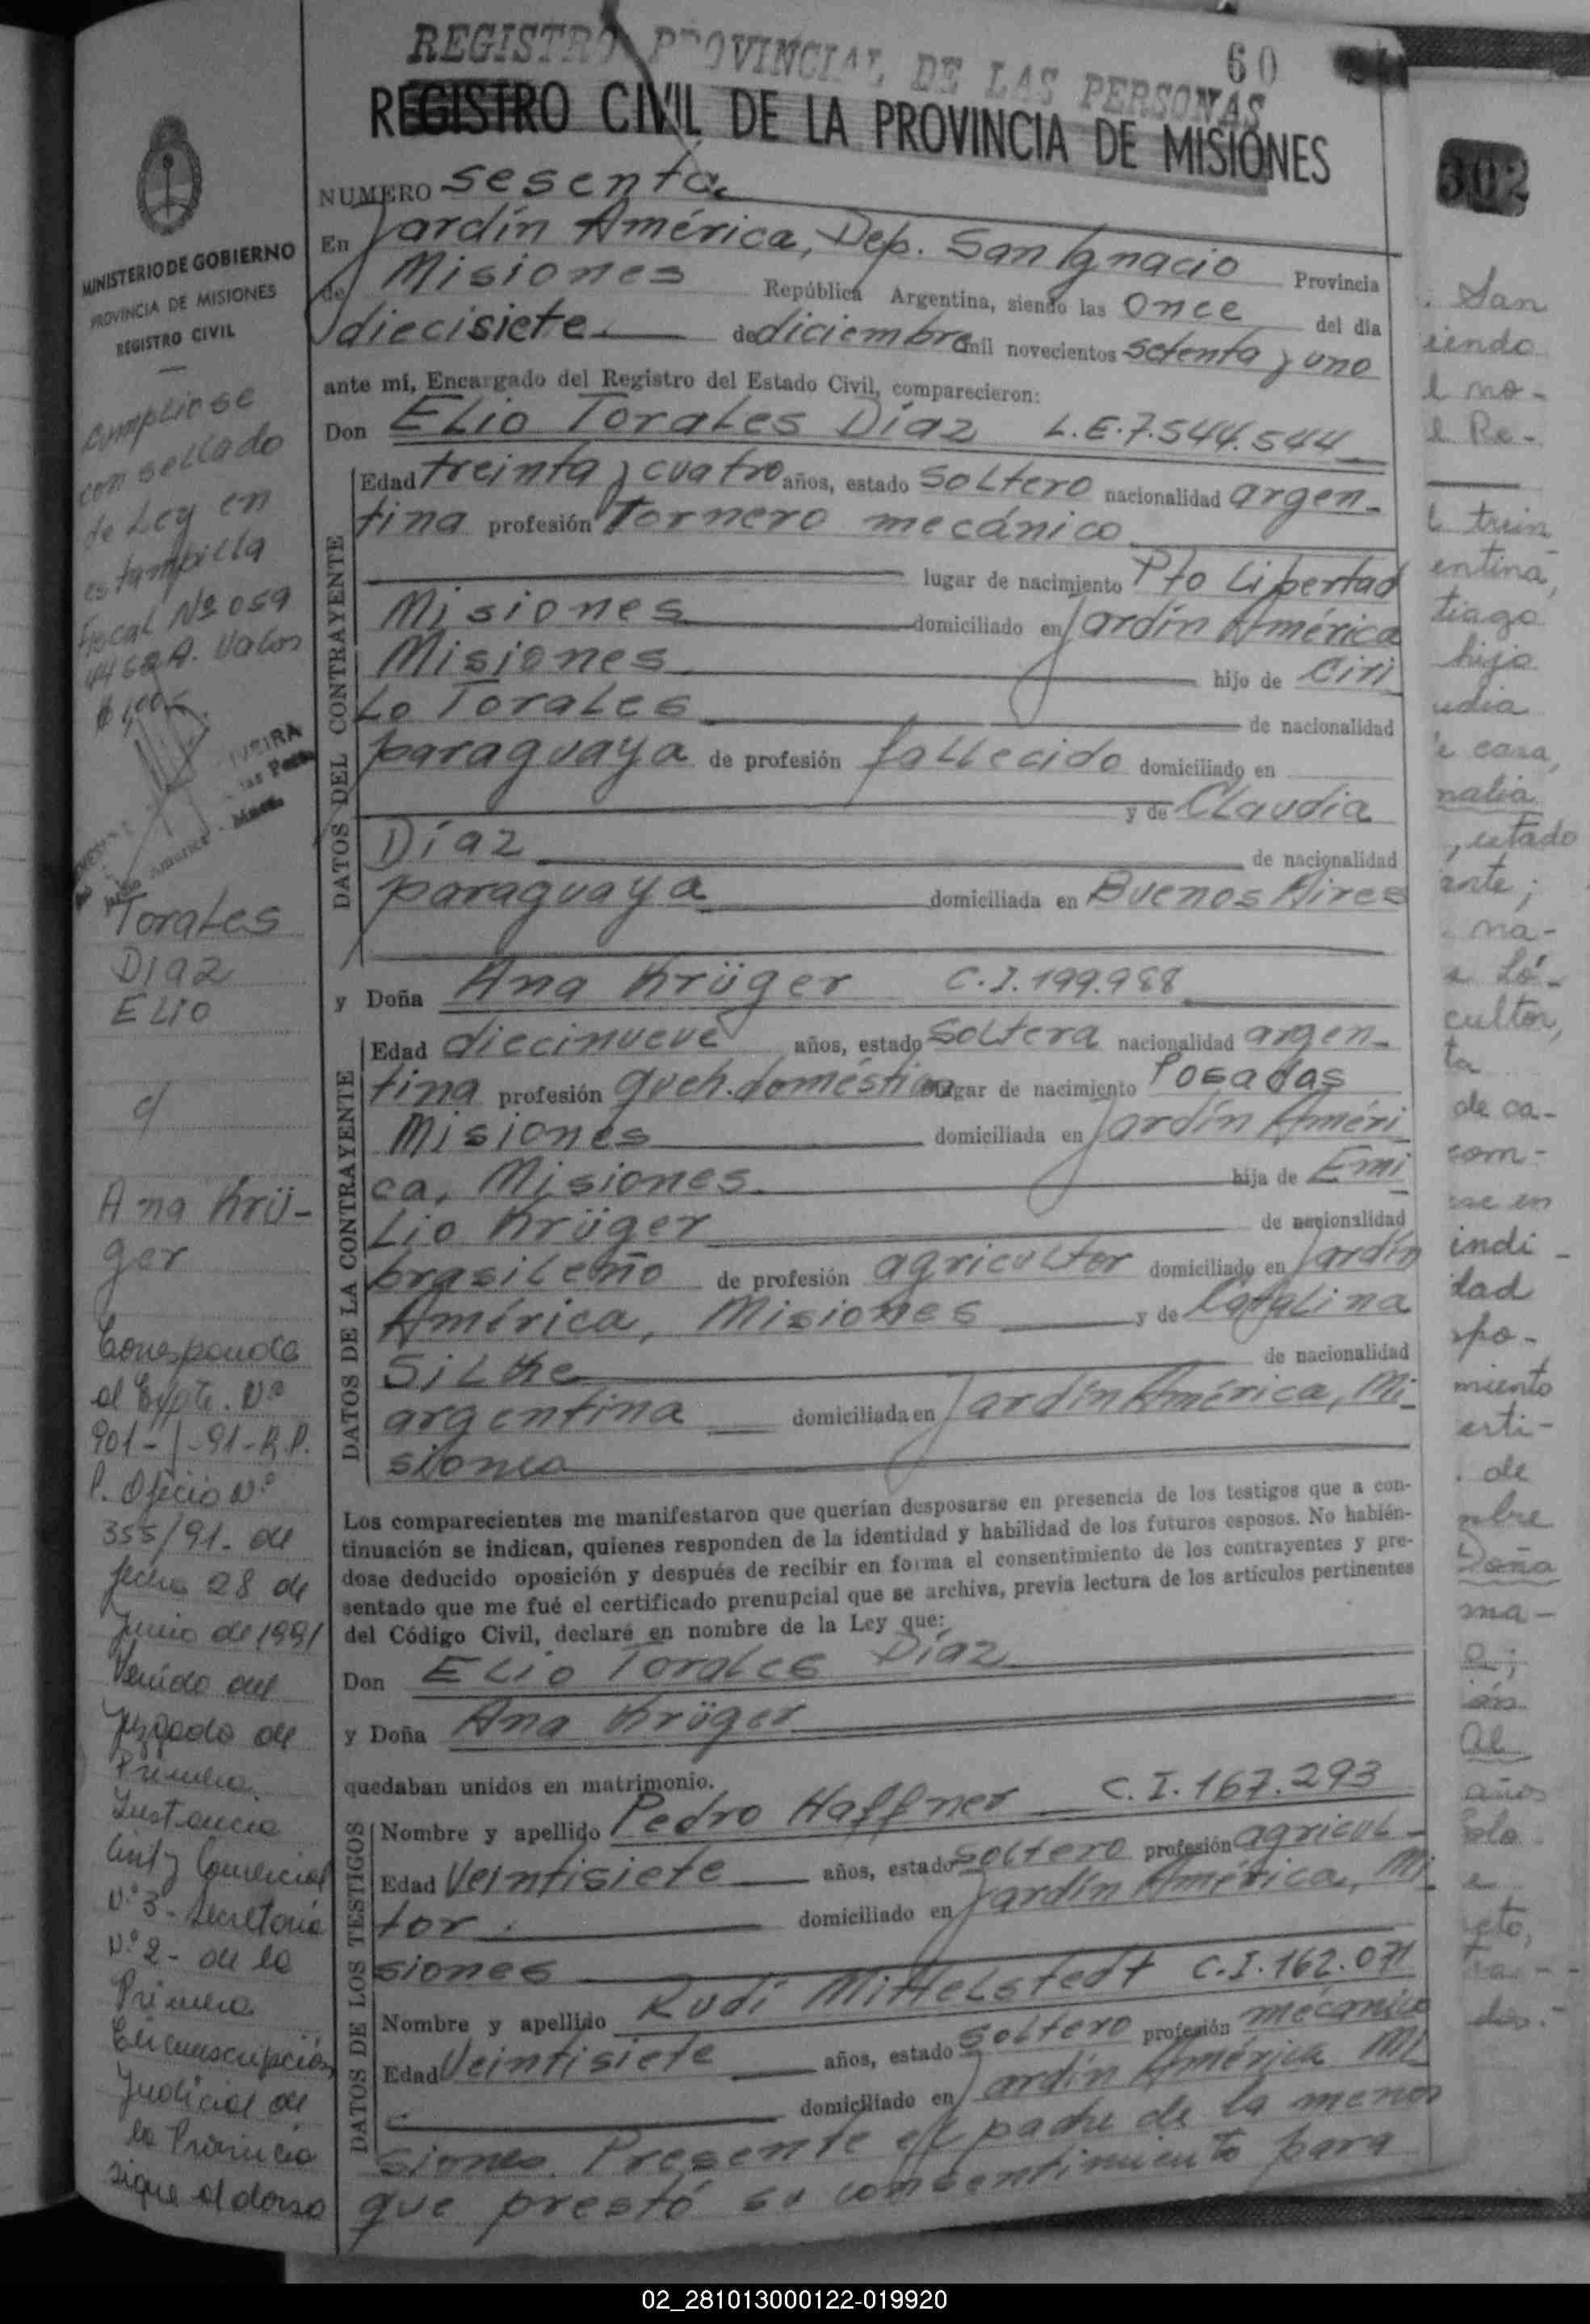 REGISTRO PROVINCIAL DE LAS PERSONAS
60
REGISTRO CIVIL DE LA PROVINCIA DE MISIONES
302
NUMERO sesenta
En Jardín América, Dep. San Ignacio Provincia
de Misiones República Argentina, siendo las once del dia
diecisiete de diciembre mil novecientos setenta y uno
ante mí, Encargado del Registro del Estado Civil, comparecieron:
Don Elio Torales Díaz L.E.7.544.544
DATOS DEL CONTRAYENTE
Edad treinta y cuatro años, estado soltero nacionalidad argen-
tina profesión Tornero mecánico
lugar de nacimiento Pto Libertad
Misiones domiciliado en Jardín América
Misiones hijo de Ciri
Lo Torales de nacionalidad
paraguaya de profesión fallecido domiciliado en
y de Claudia
Díaz de nacionalidad
paraguaya domiciliada en Buenos Aires
y Doña Ana Krüger C.I.199.988
DATOS DE LA CONTRAYENTE
Edad diecinueve años, estado soltera nacionalidad argen-
tina profesión queh.doméstico lugar de nacimiento Posadas
Misiones domiciliada en Jardín Améri
ca, Misiones hija de Emi
Lio Krüger de nacionalidad
brasileño de profesión agricultor domiciliado en Jardín
América, Misiones y de Catalina
Silke de nacionalidad
argentina domiciliada en Jardín América, Mi-
siones
Los comparecientes me manifestaron que querían desposarse en presencia de los testigos que a con-
tinuación se indican, quienes responden de la identidad y habilidad de los futuros esposos. No habién-
dose deducido oposición y después de recibir en forma el consentimiento de los contrayentes y pre-
sentado que me fué el certificado prenupcial que se archiva, previa lectura de los artículos pertinentes
del Código Civil, declaré en nombre de la Ley que:
Don Elio Torales Díaz
y Doña Ana Krüger
quedaban unidos en matrimonio.
DATOS DE LOS TESTIGOS
Nombre y apellido Pedro Haffner C.I.167.293
Edad Veintisiete años, estado soltero profesión agricul-
tor. domiciliado en Jardín América, Mi-
siones
Nombre y apellido Rudi Mittelstedt C.I.162.071
Edad Veintisiete años, estado soltero profesión mecánico
domiciliado en Jardín América Mi
siones. Presente el padre de la menor
que prestó su consentimiento para
MINISTERIO DE GOBIERNO
PROVINCIA DE MISIONES
REGISTRO CIVIL
Cumpliose
con sellado
de Ley en
estampilla
Fiscal Nº 059
4462A. Valor
Torales
Díaz
Elio
c/
Ana Krü-
ger
Corresponde
al Expte. Nº
901-J-91-R.P.
P. Oficio Nº
355/91- de
fecha 28 de
Junio de 1991
Venido del
Juzgado de
Primera
Instancia
Civil y Comercial
Nº 3- Secretaria
Nº 2- de la
Primera
Circunscripción
Judicial de
la Provincia
sigue al dorso
San
l no-
l Re-
entina,
tiago
hijo
udia
e casa,
nalia
, estado
ante;
na-
cultor,
ta
de ca-
com-
se en
indi-
dad
spo-
miento
erti-
de
mbre
Doña
ma-
Al
años
02_281013000122-019920